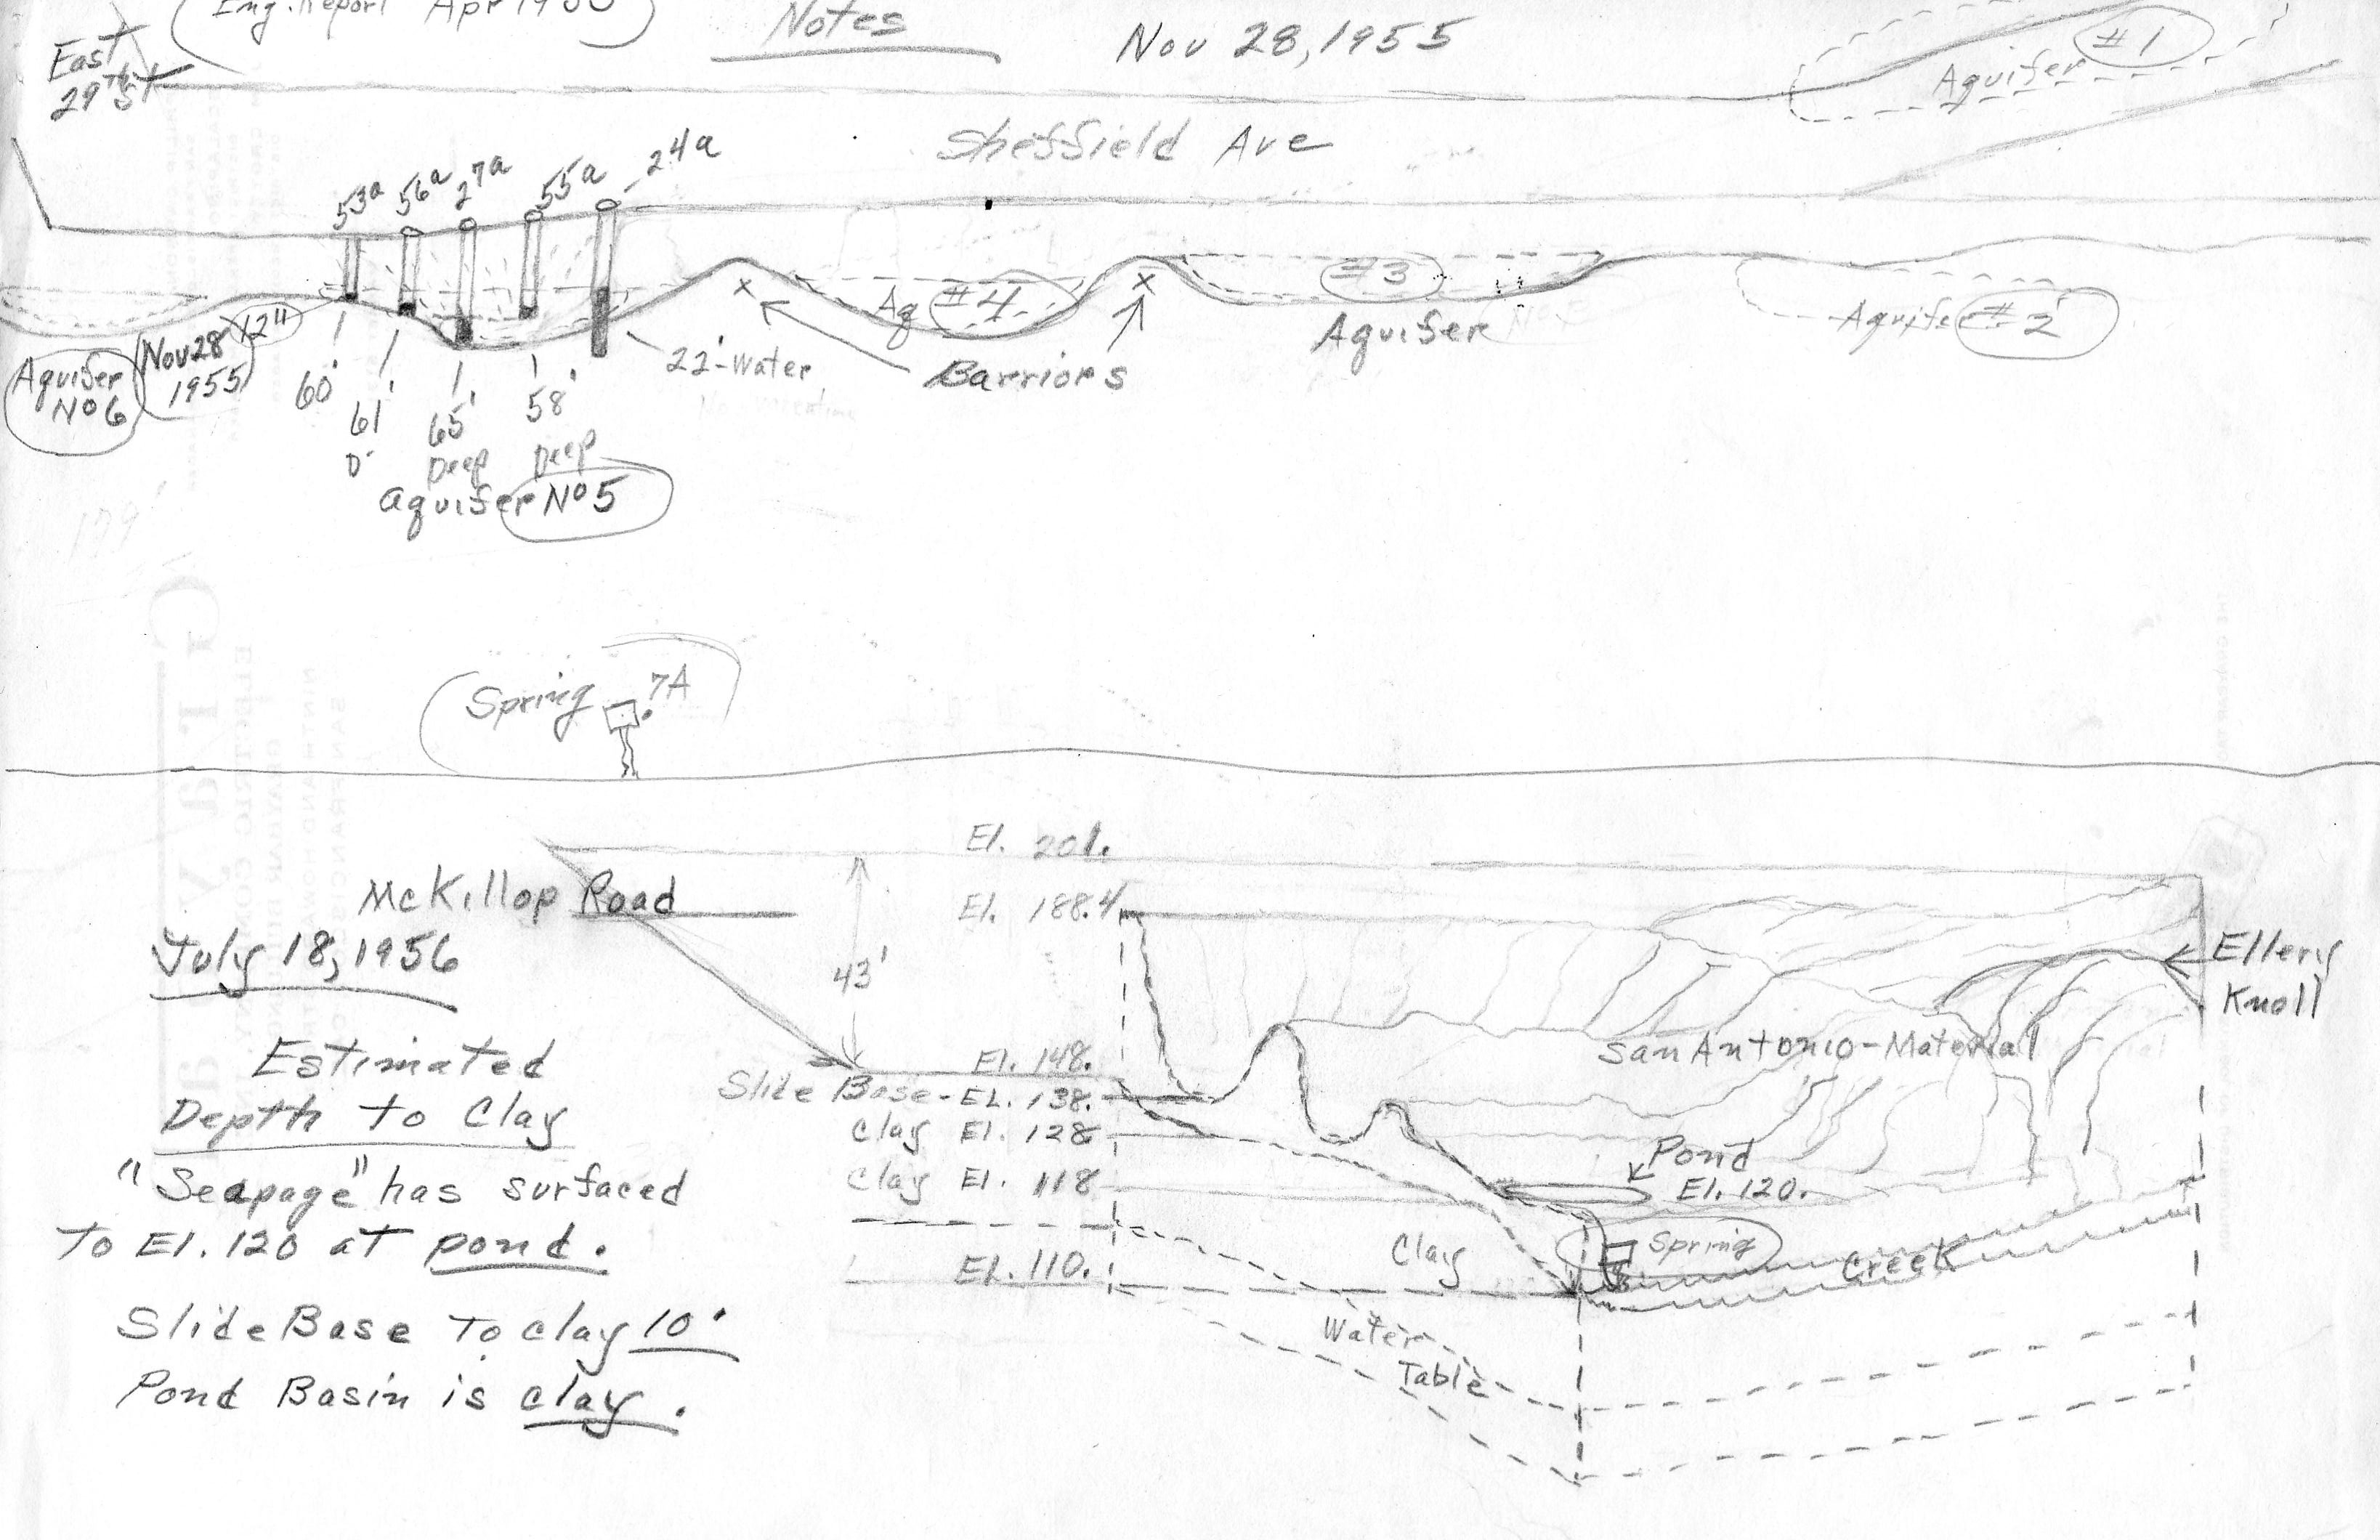 Eng. Report Apr 19
Notes
Nov 28, 1955
East
29th St
#1
Aquifer
Sheffield Ave
53a 56a 27a 55a 24a
#3
Ag #4
Aquifer
Aquifer #2
Barriors
22'-Water
12"
Nov 28
1955
Aquifer
No 6
60'
61'
D'
65'
Deep
58'
Deep
aquifer No 5
Spring 7A
El. 201.
McKillop Road
El. 188.4
July 18, 1956
43'
Ellery
Knoll
San Antonio-Material
Estimated
Depth to Clay
El. 148.
Slide Base - EL. 138.
Clay El. 128
Clay El. 118
Pond
El. 120.
"Seapage" has surfaced
to El. 120 at pond.
Clay
Spring
Creek
EL. 110.
Water
Table
Slide Base To clay 10'
Pond Basin is clay.